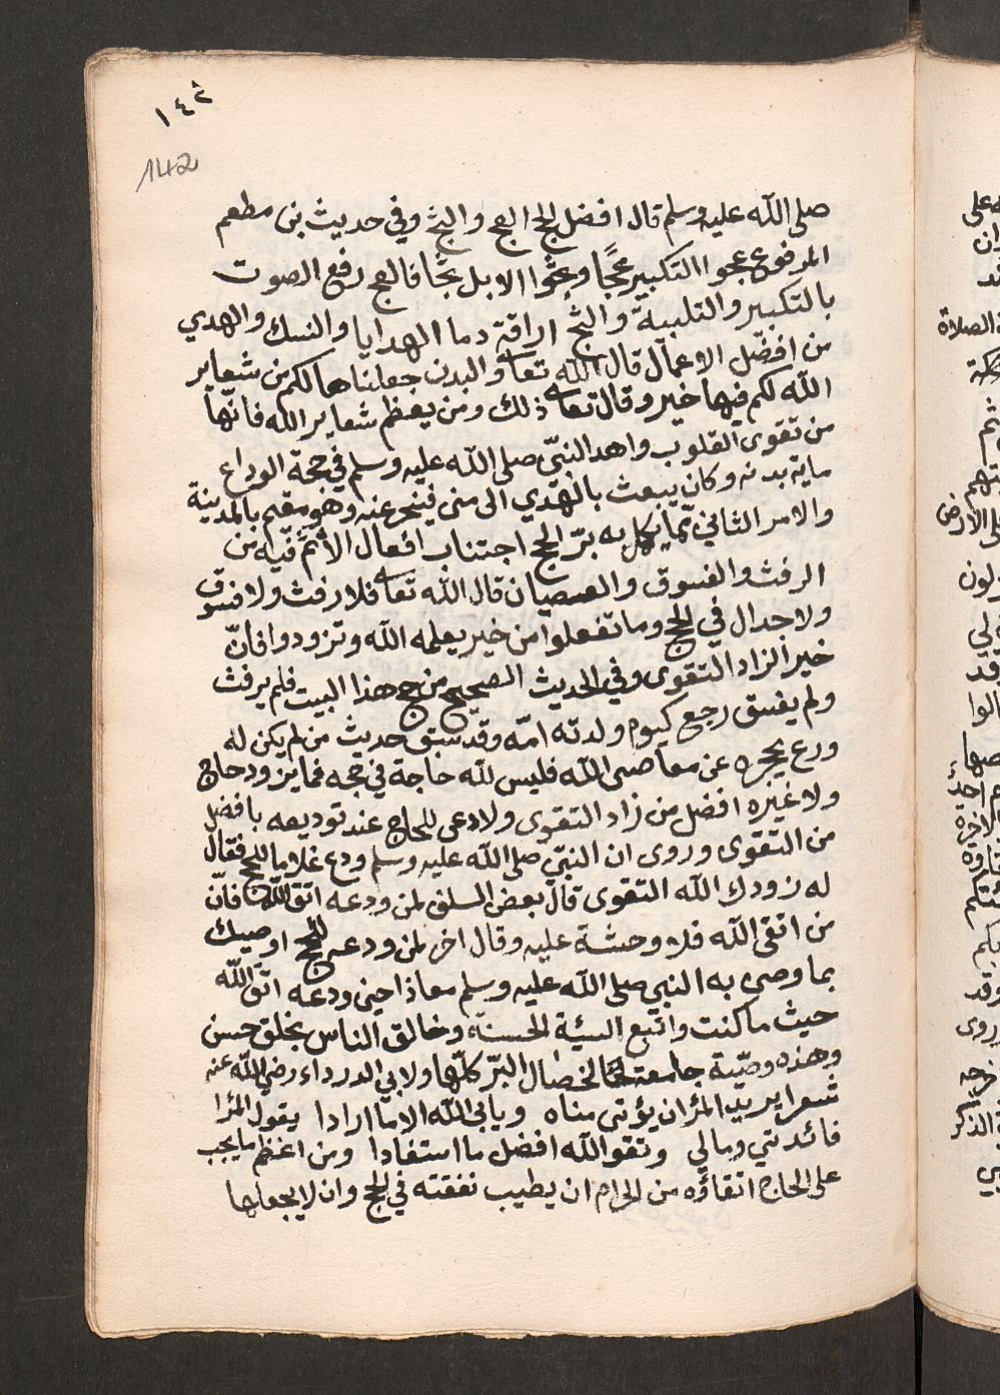 ١٤٢
142
صلى الله عليه وسلم قال افضل الحج العج والثج وفي حديث بن مطعم
المرفوع عجوا التكبير عجًا وثجوا الابل ثجًّا فالعج رفع الصوت
بالتكبير والتلبية والثج اراقة دما الهدايا والنسك والهدي
من افضل الاعمال قال الله تعا والبدن جعلناها لكم من شعاير
الله لكم فيها خير وقال تعا ذلك ومن يعظم شعاير الله فانّها
من تقوى القلوب واهد النبيّ صلى الله عليه وسلم في حجة الوداع
ماية بدنه وكان يبعث بالهدي الى منى فينحر عنه وهو مقيم بالمدينة
والامر الثاني ممّا يكمل به برّ الحج اجتناب افعال الأثم فيه من
الرفث والفسوق والعصيان قال الله تعا فلا رفث ولا فسوق
ولا جدال في الحج وما تفعلوا من خير يعلمه الله وتزودوا فانّ
خير الزاد التقوى وفي الحديث الصحيح من حج هذا البيت فلم يرفث
ولم يفسق رجع كيوم ولدته امّه وقد سبق حديث من لم يكن له
ورع يحجزه عن معاصى الله فليس لله حاجة في حجه فما يزود حاج
ولا غيره افضل من زاد التقوى ولا دعى للحاج عند توديعه بافضل
من التقوى وروى ان النبيّ صلى الله عليه وسلم ودع غلاما للحج فقال
له زودك الله التقوى قال بعض السلف لمن ودعه اتق الله فانّ
من اتقى الله فلا وحشة عليه وقال اخر لمن ودعه للحج اوصيك
بما وصى به النبي صلى الله عليه وسلم معاذا حين ودعه اتّق الله
حيث ما كنت واتبع السيئة الحسنة وخالق الناس بخلق حسن
وهذه وصيّة جامعة لخصال البرّ كلّها ولابي الدرداء رضي الله عنه
شعرا يريد المرٔ ان يؤتى مناه ويابى الله الا ما ارادا يقول المرٔا
فائدتي ومالي وتقو الله افضل ما استفادا ومن اعظم ما يجب
على الحاج اتقاؤه من الحرام ان يطيب نفقته في الحج وان لا يجعلها